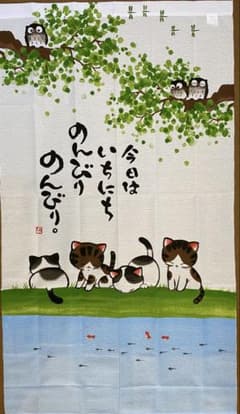 今日は
いちにち
のんびり
のんびり。